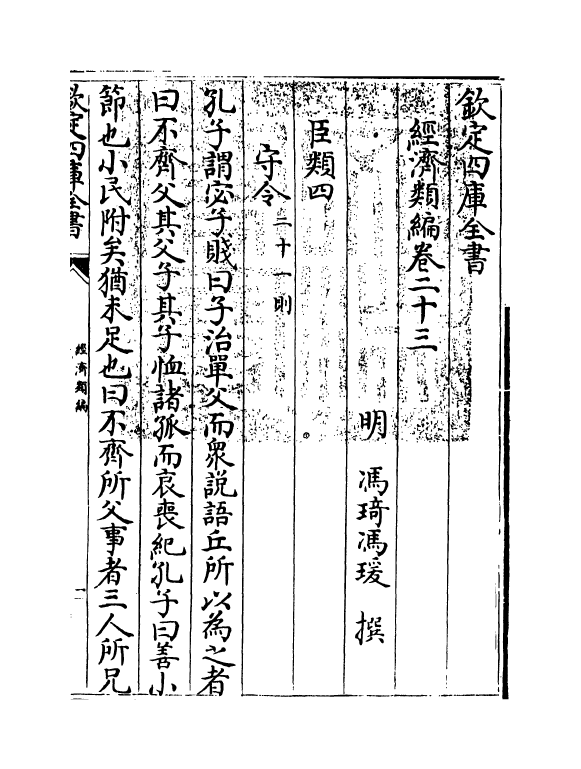 欽定四庫全書
經濟類編卷二十三
明 馮琦馮瑗 撰
臣類四
守令二十一則
孔子謂宓子賤曰子治單父而衆說語丘所以為之者
曰不齊父其父子其子恤諸孤而哀喪紀孔子曰善小
節也小民附矣猶未足也曰不齊所父事者三人所兄
欽定四庫全書
經濟類編
一